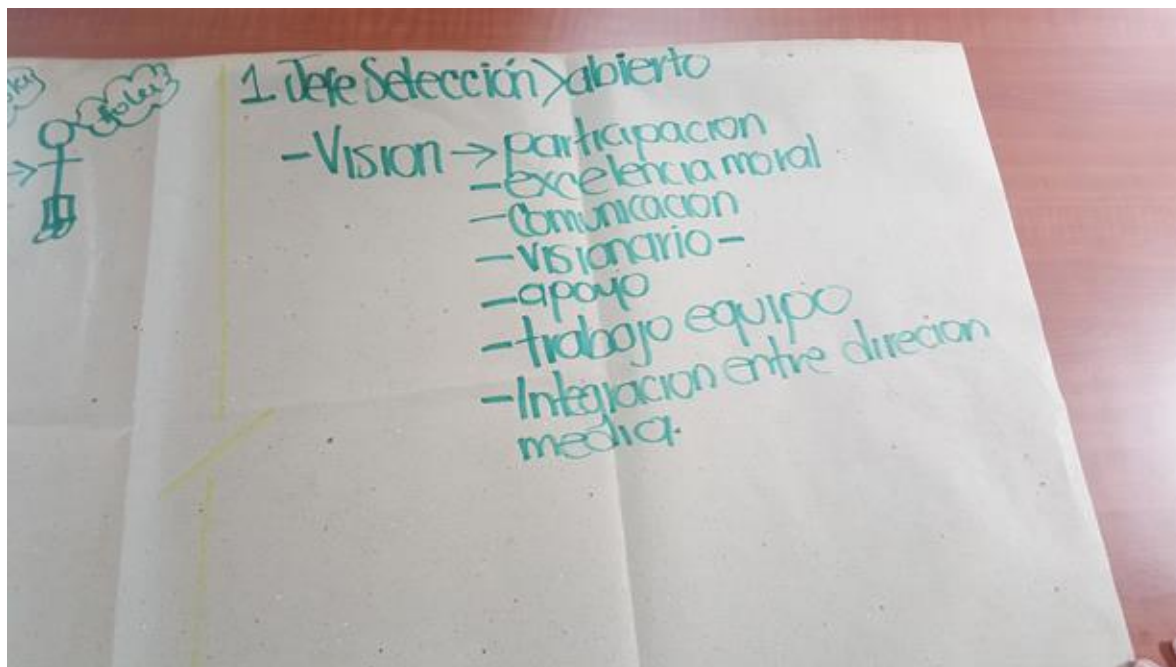 1 Jefe Selección > abierto
- Vision → participacion
- excelencia moral
- comunicacion
- visionario -
- apoyo
- trabajo equipo
- Integracion entre direcion
media.